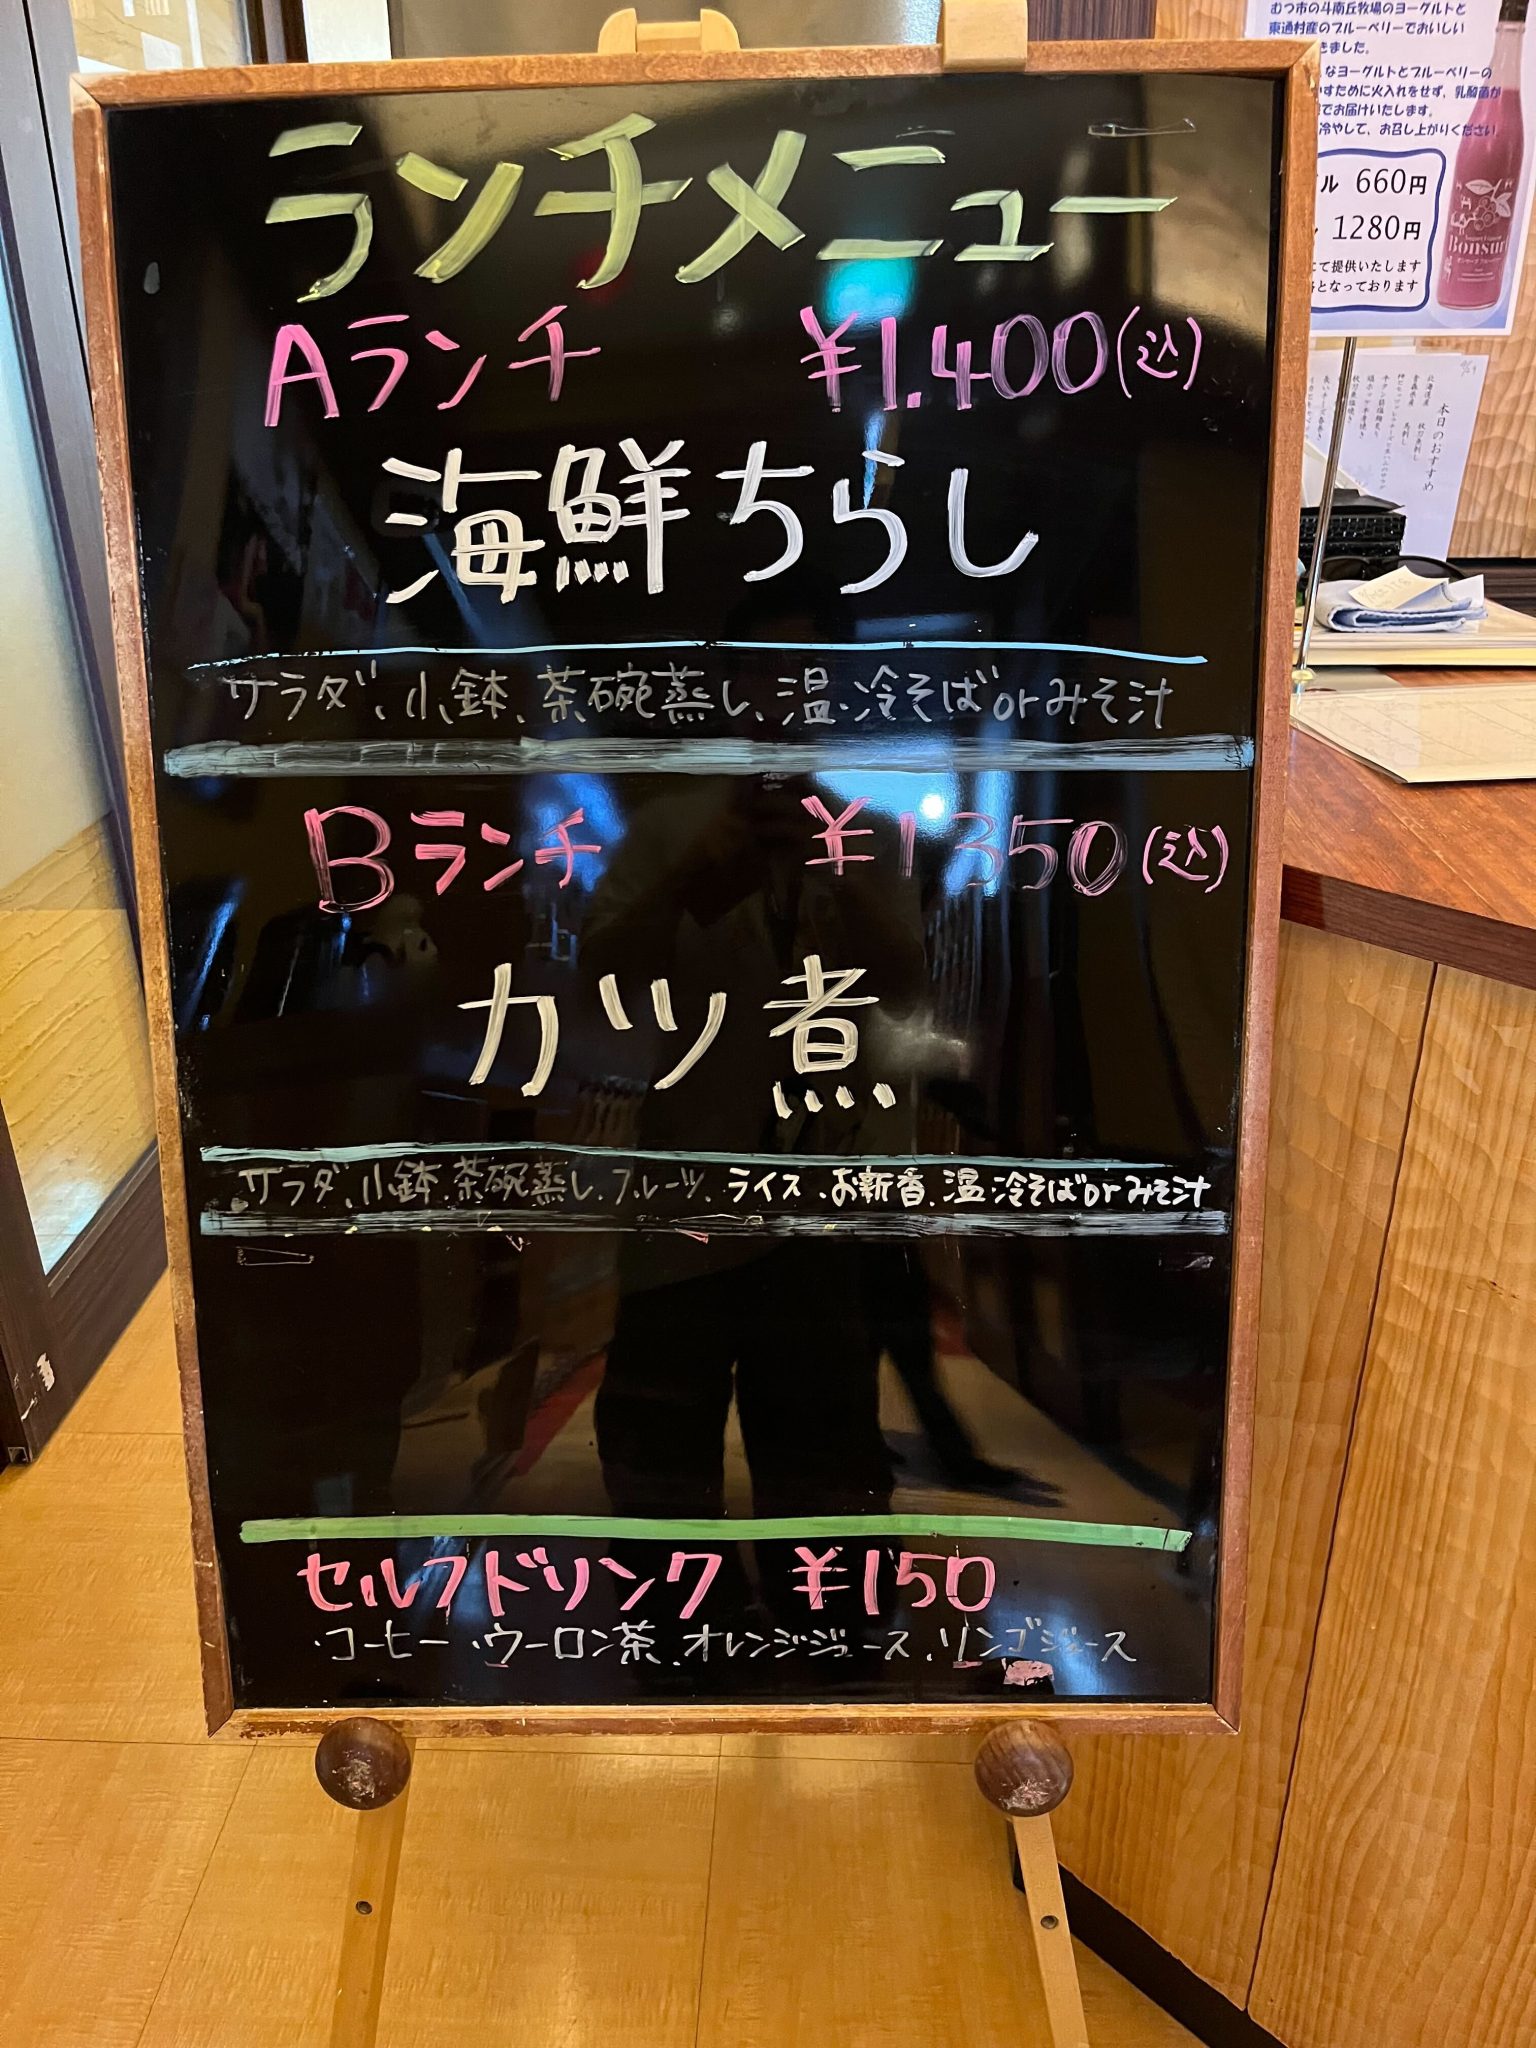 ランチメニュー
Aランチ ¥1.400(込)
海鮮ちらし
サラダ、小鉢、茶碗蒸し、温・冷そばorみそ汁
Bランチ ¥1350(込)
カツ煮
サラダ、小鉢、茶碗蒸し、フルーツ、ライス、お新香、温・冷そばorみそ汁
セルフドリンク ¥150
・コーヒー・ウーロン茶・オレンジジュース・リンゴジュース
むつ市の斗南丘牧場のヨーグルトと
東通村産のブルーベリーでおいしい
きました。
なヨーグルトとブルーベリーの
かすために火入れをせず、乳酸菌が
でお届けいたします。
冷やして、お召し上がりください
ル 660円
1280円
にて提供いたします
となっております
Bonsun
本日のおすすめ
北海道産 秋刀魚刺し
青森県産 馬刺し